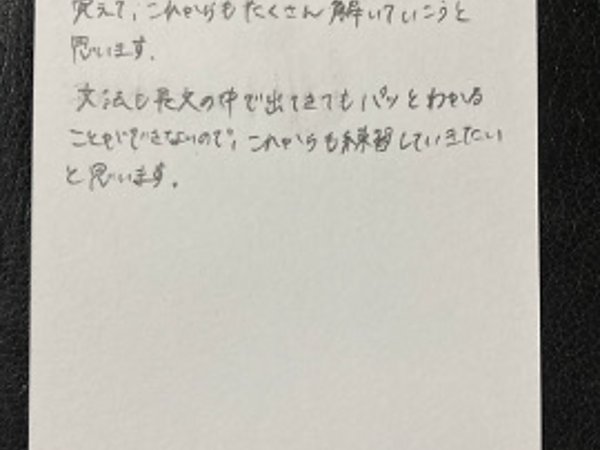 覚えて、これからもたくさん解いていこうと
思います。
文法も長文の中で出てきてもパッとわかる
ことができないので、これからも練習していきたい
と思います。